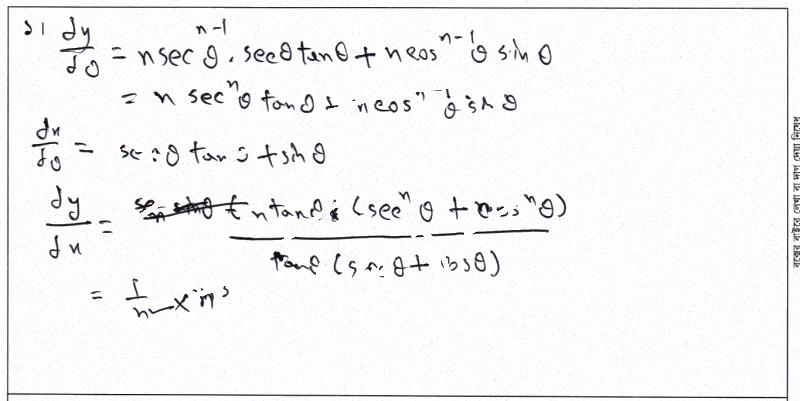 ১। dy/dθ = n sec^{n-1}θ . secθ tanθ + n cos^{n-1}θ sinθ
= n sec^n θ tanθ + n cos^{n-1}θ sinθ
dx/dθ = secθ tanθ + sinθ
dy/dx = n tanθ (sec^n θ + cos^n θ) / tanθ (secθ + cosθ)
= 1/n × n
বক্সের বাইরে লেখা বা দাগ দেয়া নিষেধ